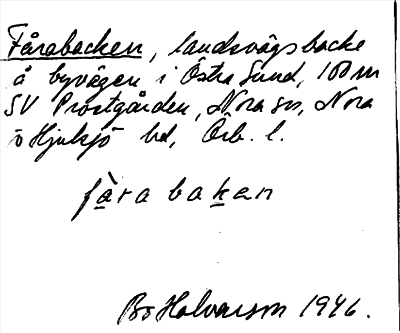 Fårabacken, landsvägsbacke
å byvägen i Östra Sund, 100 m
SV Prostgården, Nora sn, Nora
o Hjulsjö bd, Örb. l.
fàra bakan
Bo Halvarson 1946.